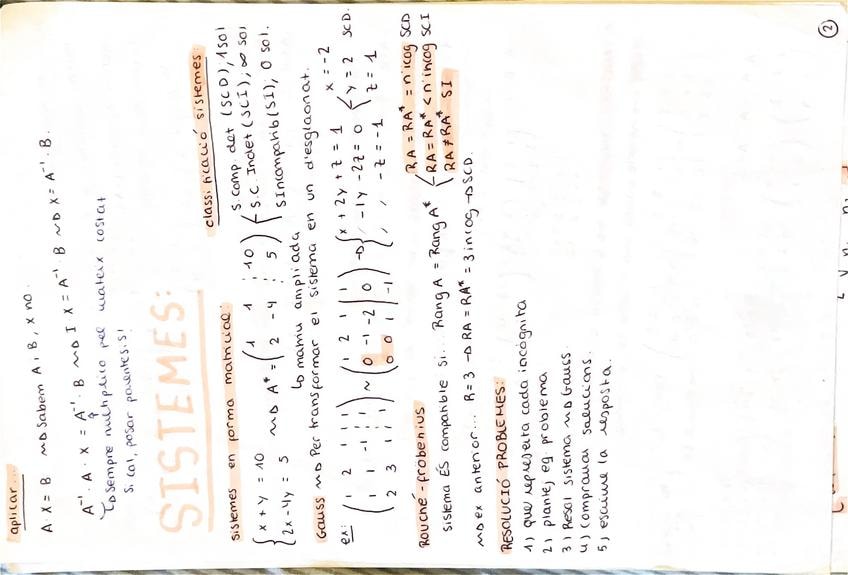 aplicar...
A·X=B ⟿ Sabem A i B, X no.
A⁻¹·A·X = A⁻¹·B ⟿ I X = A⁻¹·B ⟿ X = A⁻¹·B.
↳ Sempre multiplico pel mateix costat
Si cal, posar parentesis!
SISTEMES:
sistemes en forma matricial:
{x+y=10
2x-4y=5 ⟿ A* = (1 1 ⋮ 10
2 -4 ⋮ 5)
↳ matriu ampliada
classificació sistemes:
S. comp. det (SCD), 1 sol
S.C. Indet (SCI), ∞ sol
S Incompatib (SI), 0 sol.
Gauss ⟿ Per transformar el sistema en un d'esglaonat.
ex: (1 2 1 ⋮ 1
1 1 -1 ⋮ 1
2 3 1 ⋮ 1) ~ (1 2 1 | 1
0 -1 -2 | 0
0 0 1 | -1) → {x+2y+z=1
/ -1y -2z=0
/ / -z=-1 { x=-2
y=2
z=1 SCD.
ROUCHÉ-fröbenius
sistema ÉS compatible si... Rang A = Rang A* { RA=RA* = nºicog SCD
RA=RA* < nºincog SCI
RA≠RA* SI
⟿ ex anterior... R=3 → RA=RA*=3incog → SCD.
RESOLUCIÓ PROBLEMES:
1) que representa cada incògnita
2) plantej eq problema
3) Resol sistema ⟿ Gauss.
4) comprovar solucions.
5) escriure la resposta.
2